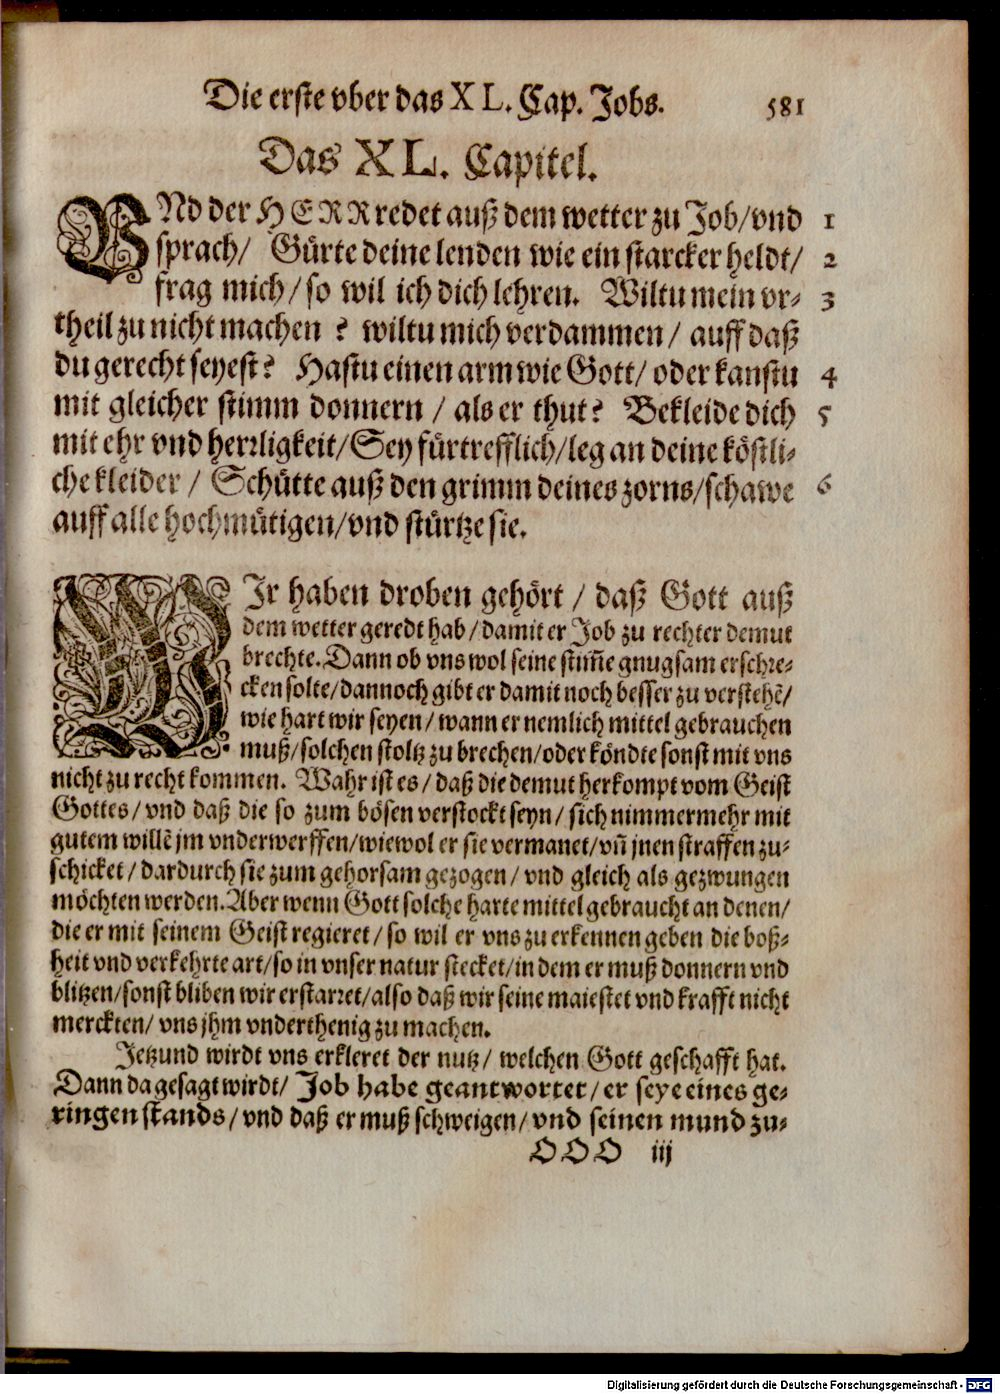 Die erste vber das XL. Cap. Jobs. 581
Das XL. Capitel.
VNd der HERR redet auß dem wetter zu Job/vnd 1
sprach/ Gürte deine lenden wie ein starcker heldt/ 2
frag mich/so wil ich dich lehren. Wiltu mein vr- 3
theil zu nicht machen ? wiltu mich verdammen/ auff daß
du gerecht seyest? Hastu einen arm wie Gott/ oder kanstu 4
mit gleicher stimm donnern / als er thut? Bekleide dich 5
mit ehr vnd herrligkeit/Sey fürtrefflich/leg an deine köstli-
che kleider / Schütte auß den grimm deines zorns/schawe 6
auff alle hochmütigen/vnd stürtze sie.
WJr haben droben gehört / daß Gott auß
dem wetter geredt hab/damit er Job zu rechter demut
brechte. Dann ob vns wol seine stim̃e gnugsam erschre-
cken solte/dannoch gibt er damit noch besser zu verstehẽ/
wie hart wir seyen/wann er nemlich mittel gebrauchen
muß/solchen stoltz zu brechen/oder köndte sonst mit vns
nicht zu recht kommen. Wahr ist es/ daß die demut herkompt vom Geist
Gottes/vnd daß die so zum bösen verstockt seyn/ sich nimmermehr mit
gutem willẽ jm vnderwerffen/wiewol er sie vermanet/vñ jnen straffen zu-
schicket/dardurch sie zum gehorsam gezogen/vnd gleich als gezwungen
möchten werden. Aber wenn Gott solche harte mittel gebraucht an denen/
die er mit seinem Geist regieret/so wil er vns zu erkennen geben die boß-
heit vnd verkehrte art/so in vnser natur stecket/in dem er muß donnern vnd
blitzen/sonst bliben wir erstarret/also daß wir seine maiestet vnd krafft nicht
merckten/ vns jhm vnderthenig zu machen.
Jetzund wirdt vns erkleret der nutz/ welchen Gott geschafft hat.
Dann da gesagt wirdt/ Job habe geantwortet/er seye eines ge-
ringen stands/vnd daß er muß schweigen/vnd seinen mund zu-
OOO iij
Digitalisierung gefördert durch die Deutsche Forschungsgemeinschaft - DFG